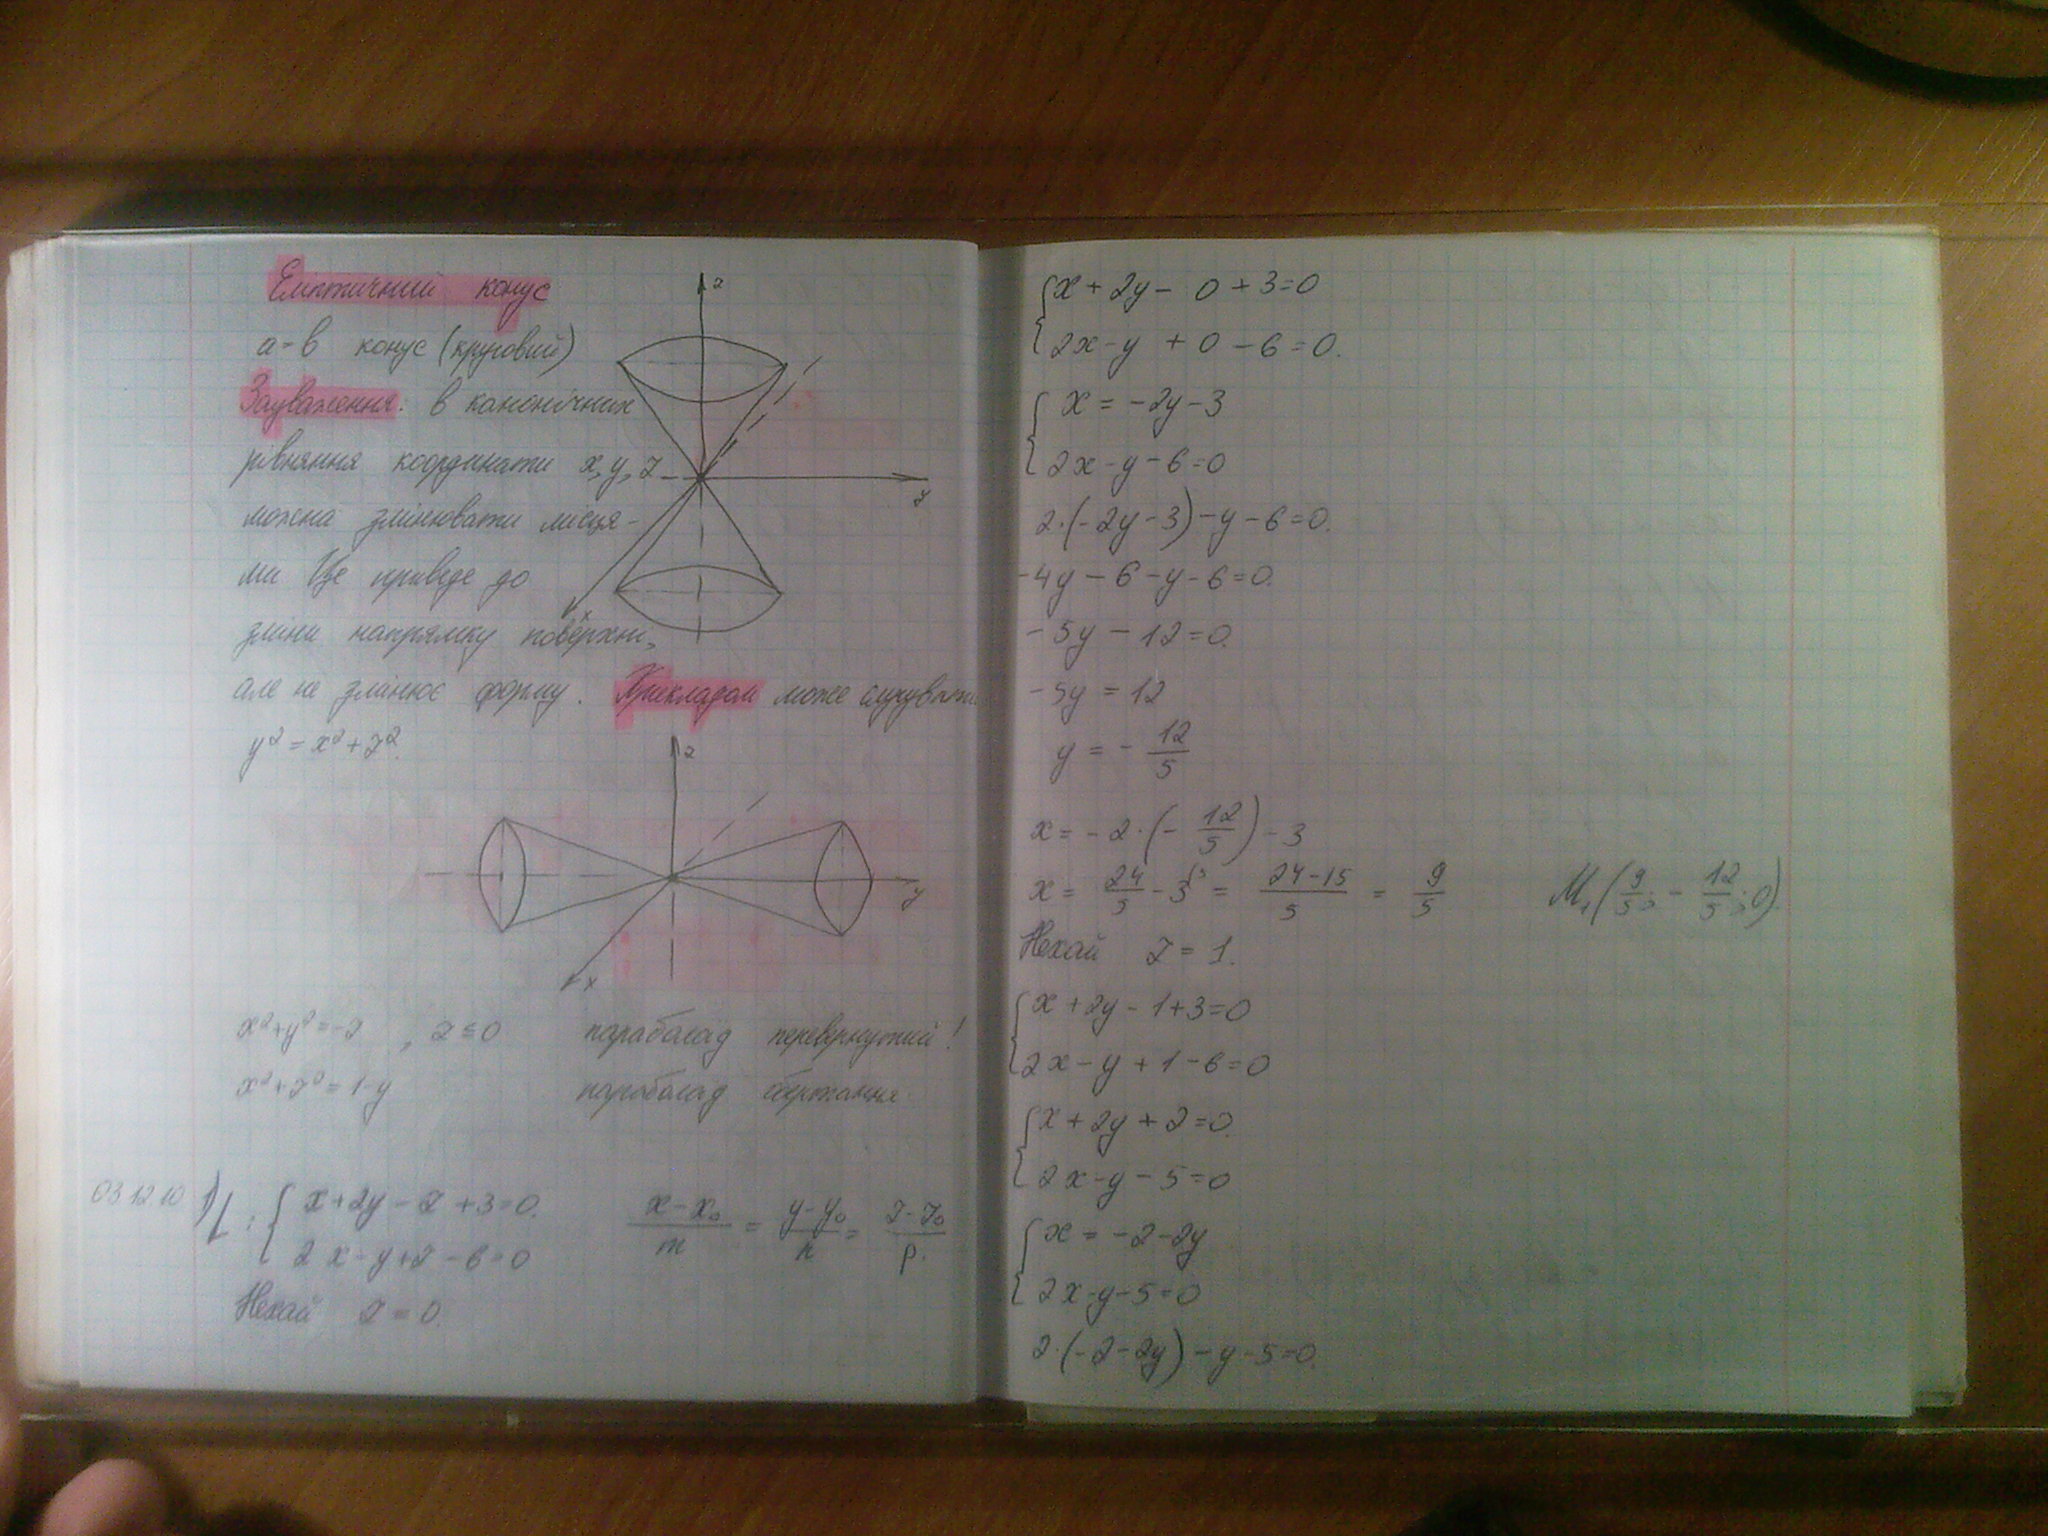 Еліптичний конус
a=b конус (круговий)
Зауваження: в канонічних
рівняння координати x, y, z
можна змінювати місця-
ми Це приведе до
зміни напрямку поверхні,
але не змінює форму. Прикладом може слугувати
y² = x² + z².
z
y
x
z
y
x
x²+y²=-z , z≤0 параболоїд перевернутий!
x²+z²=1-y параболоїд обертання.
03 12 10 1) L: { x+2y-z+3=0.
2x-y+z-6=0
(x-x₀)/m = (y-y₀)/n = (z-z₀)/p.
Нехай z=0.
{ x+2y-0+3=0
2x-y+0-6=0.
{ x=-2y-3
2x-y-6=0
2·(-2y-3)-y-6=0.
-4y-6-y-6=0.
-5y-12=0.
-5y=12
y=-12/5
x=-2·(-12/5)-3
x=24/5-3=(24-15)/5=9/5 M₁(9/5; -12/5; 0).
Нехай z=1.
{ x+2y-1+3=0
2x-y+1-6=0
{ x+2y+2=0.
2x-y-5=0
{ x=-2-2y
2x-y-5=0
2·(-2-2y)-y-5=0.